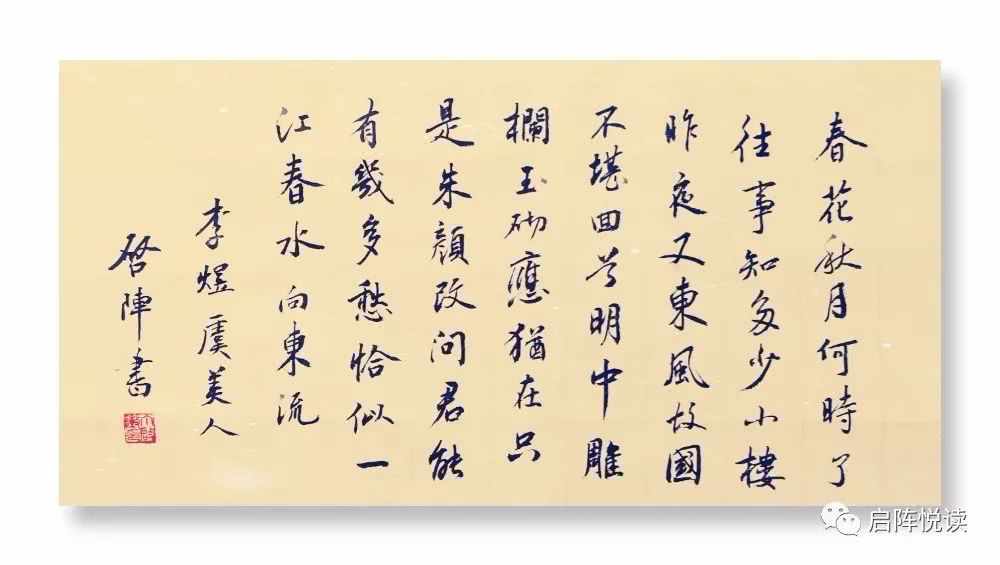 春花秋月何時了
往事知多少小樓
昨夜又東風故國
不堪回首明中雕
欄玉砌應猶在只
是朱顏改問君能
有幾多愁恰似一
江春水向東流
李煜虞美人
啓陣書
启阵悦读